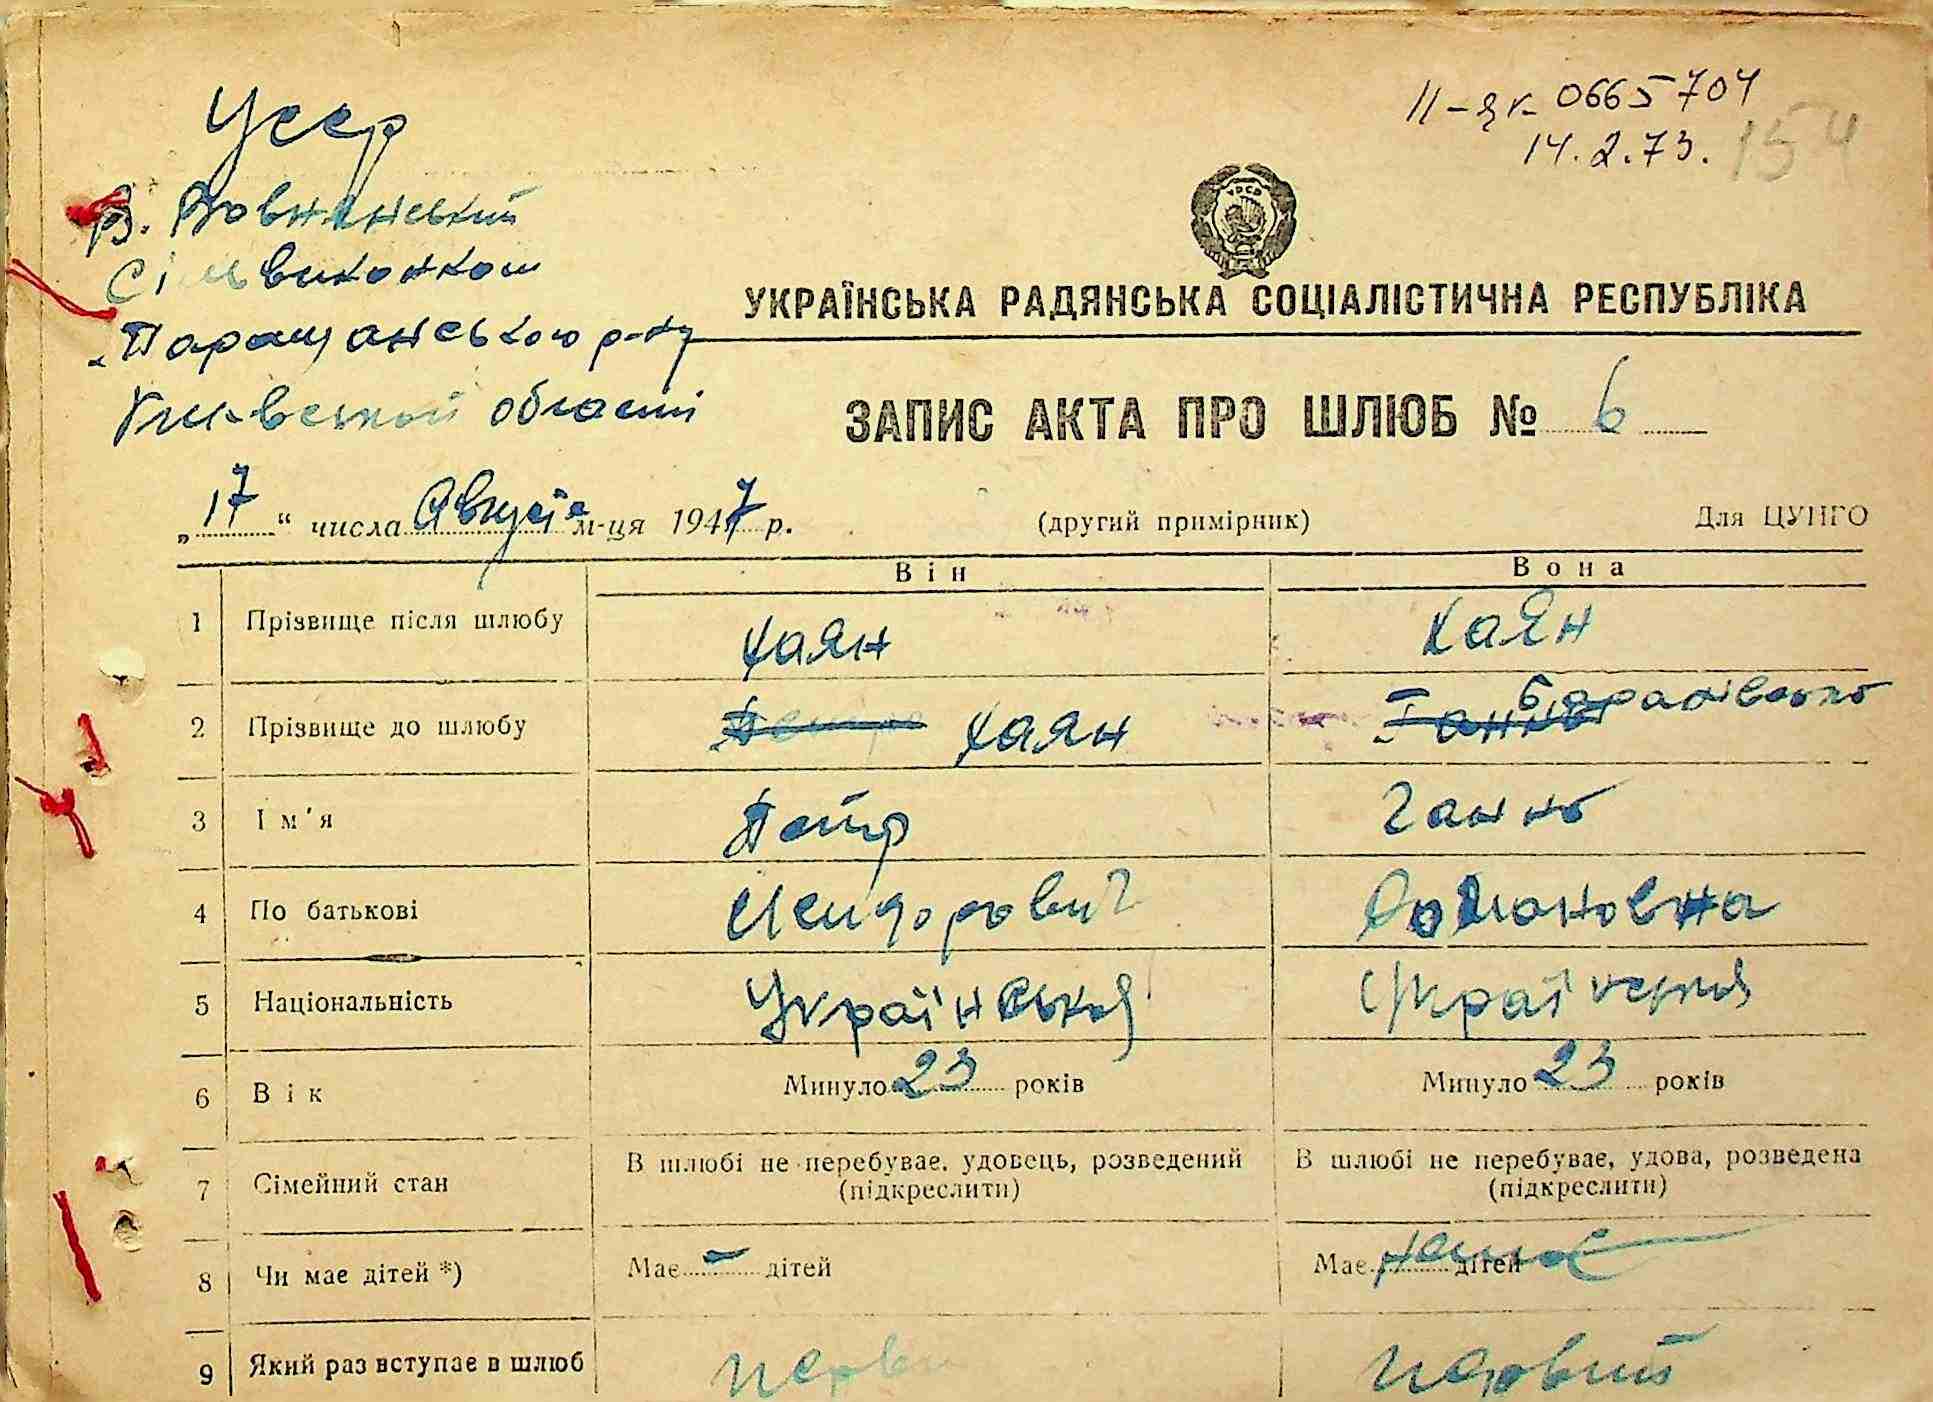 II-як 0665704
14.2.73.
154
Усср
В. Вовнянський
Сільвиконком
Таращанського р-ну
Київської області
УКРАЇНСЬКА РАДЯНСЬКА СОЦІАЛІСТИЧНА РЕСПУБЛІКА
ЗАПИС АКТА ПРО ШЛЮБ № 6
„17“ числа Августа м-ця 1947 р. (другий примірник) Для ЦУНГО
Він Вона
1 Прізвище після шлюбу Хаян Хаян
2 Прізвище до шлюбу Хаян
3 Ім'я Петр Ганна
4 По батькові Исидорович Романовна
5 Національність Українська Українська
6 Вік Минуло 23 років Минуло 23 років
7 Сімейний стан В шлюбі не перебуває, удовець, розведений В шлюбі не перебуває, удова, розведена
(підкреслити) (підкреслити)
8 Чи має дітей *) Має – дітей Має немає дітей
9 Який раз вступає в шлюб первий первий